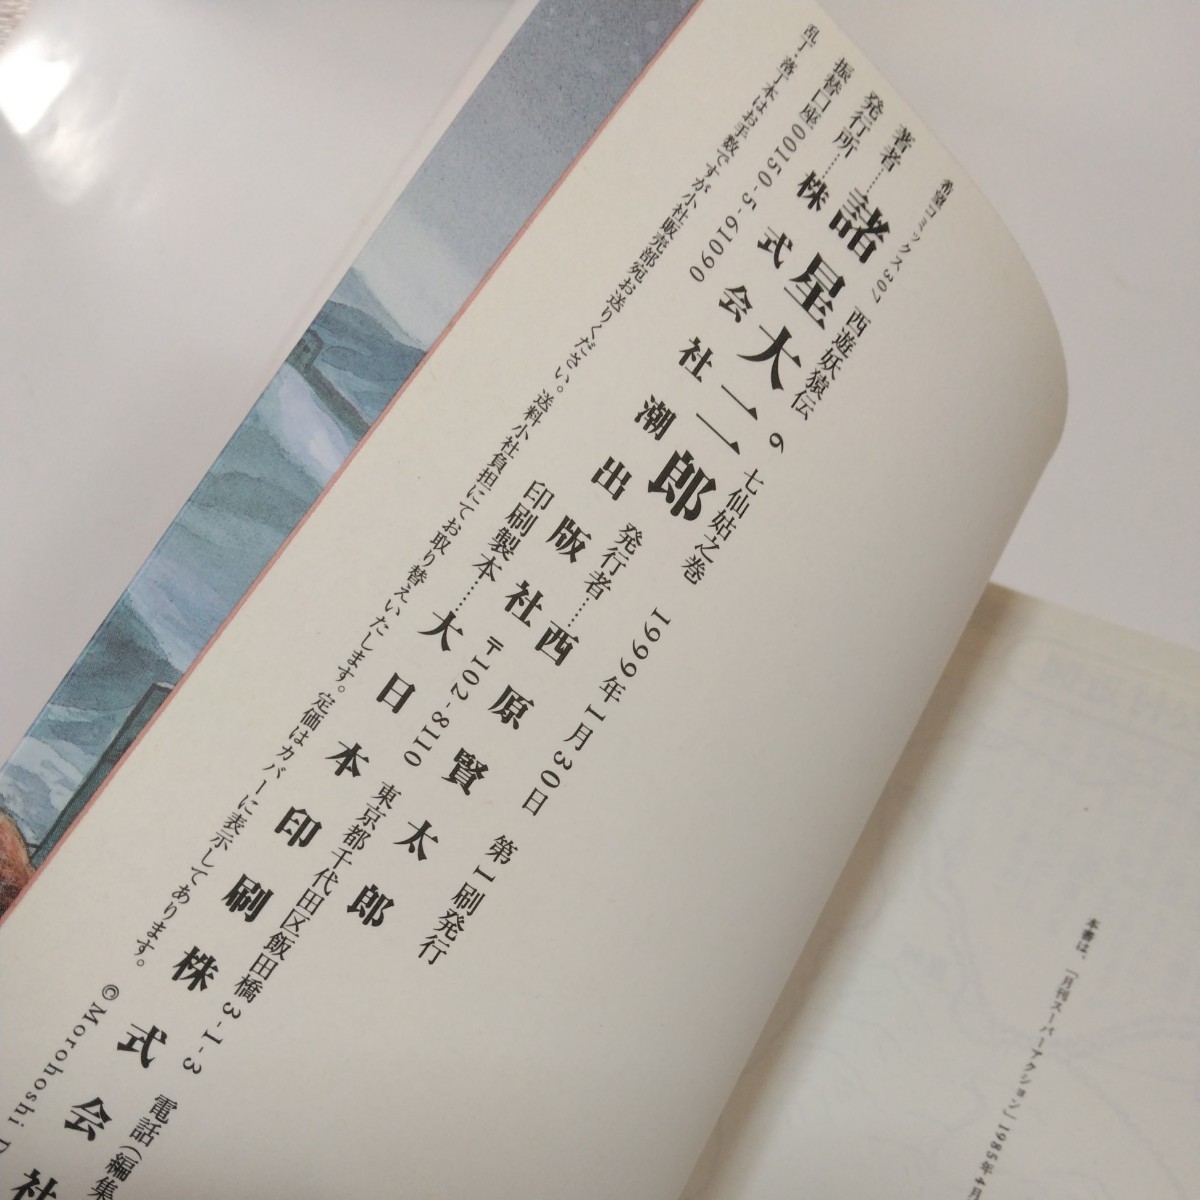 希望コミックス307 西遊妖猿伝 6 七仙姑之巻 1999年1月30日 第1刷発行
著者……諸星大二郎 発行者……西原賢太郎
発行所……株式会社潮出版社 〒102-8110 東京都千代田区飯田橋3-1-3 電話(編集
振替口座 00150-5-61090 印刷製本……大日本印刷株式会社
乱丁・落丁本はお手数ですが小社販売部宛お送りください。送料小社負担にてお取り替えいたします。定価はカバーに表示してあります。 ©Morohoshi D
本書は、「月刊スーパーアクション」1985年4月